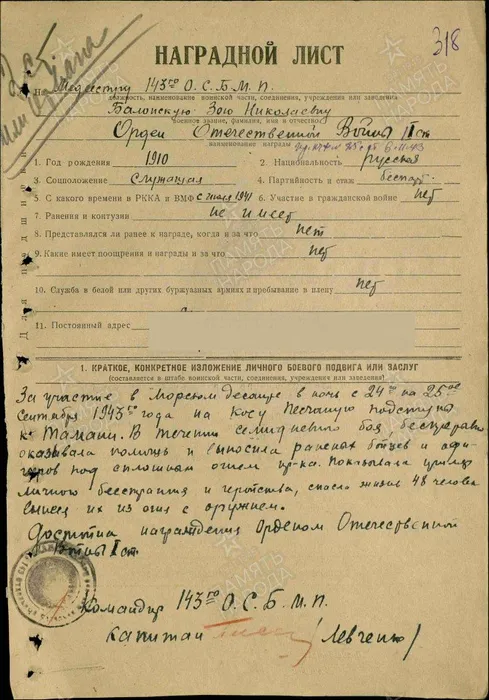 318
НАГРАДНОЙ ЛИСТ
На Медсестру 143го О.С.Б.М.П.
должность, наименование воинской части, соединения, учреждения или заведения
Зою Николаевну
военное звание, фамилия, имя и отчество
Орден Отечественной Войны II ст
наименование награды
6-11-43
1. Год рождения 1910
2. Национальность русская
3. Соцположение служащая
4. Партийность и стаж беспарт.
5. С какого времени в РККА и ВМФ с июля 1941
6. Участие в гражданской войне нет
7. Ранения и контузии не имеет
8. Представлялся ли ранее к награде, когда и за что нет
9. Какие имеет поощрения и награды и за что нет
10. Служба в белой или других буржуазных армиях и пребывание в плену нет
11. Постоянный адрес
1. КРАТКОЕ, КОНКРЕТНОЕ ИЗЛОЖЕНИЕ ЛИЧНОГО БОЕВОГО ПОДВИГА ИЛИ ЗАСЛУГ
(составляется в штабе воинской части, соединения, учреждения или заведения)
За участие в морском десанте в ночь с 24го на 25ое
сентября 1943го года на Косу Песчаную подступы
к Тамани. В течении семидневного боя бесперерывно
оказывала помощь и выносила раненых бойцов и офи-
церов под сплошным огнем пр-ка. Показывала пример
личного бесстрашия и геройства, спасла жизнь 48 человек
вынеся их из огня с оружием.
Достойна награждения Орденом Отечественной
Войны I ст.
Командир 143го О.С.Б.М.П.
Капитан /Левченко/
ПАМЯТЬ НАРОДА